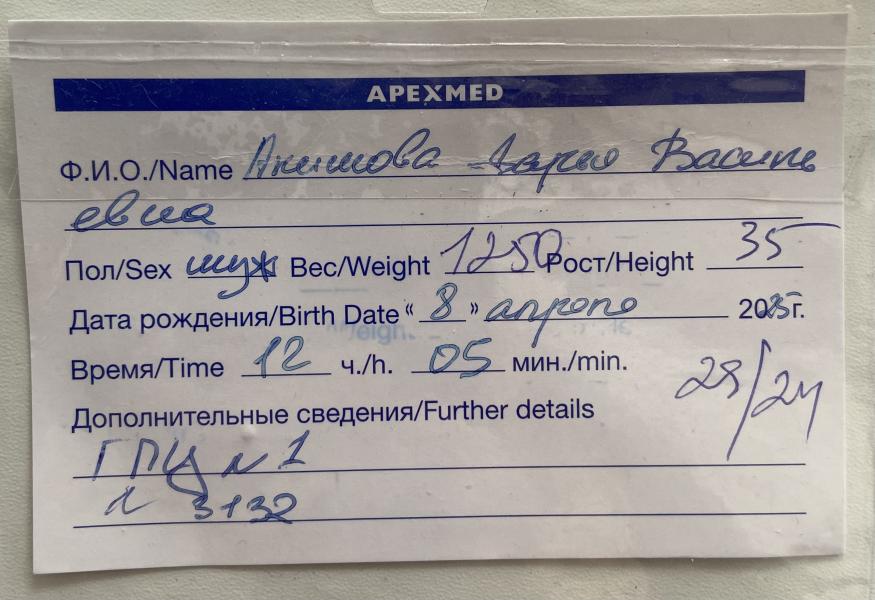 APEXMED
Ф.И.О./Name Акимова Дарья Василь
евна
Пол/Sex муж Вес/Weight 1250 Рост/Height 35
Дата рождения/Birth Date “ 8 ” апреля 2025г.
Время/Time 12 ч./h. 05 мин./min.
Дополнительные сведения/Further details
ГПЦ №1
3132